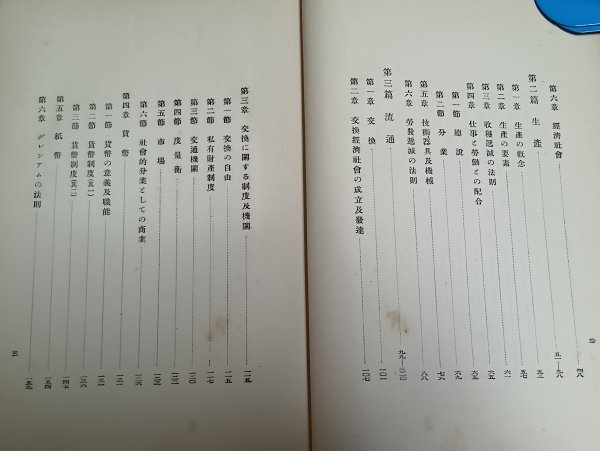 第六章 經濟社會 四八
第二篇 生產 五一―九八
第一章 生產の概念 五三
第二章 生產の要素 五七
第三章 收穫遞減の法則 六一
第四章 仕事と勞働との配合 六五
第一節 總說 六五
第二節 分業 六九
第五章 技術器具及機械 七六
第六章 勞費遞減の法則 八八
第三篇 流通 九九―三一〇
第一章 交換 一〇一
第二章 交換經濟社會の成立及發達 一〇七
二
第三章 交換に關する制度及機關 一一五
第一節 交換の自由 一一五
第二節 私有財產制度 一一七
第三節 交通機關 一二〇
第四節 度量衡 一二二
第五節 市場
第六節 社會的分業としての商業 一二六
第四章 貨幣 一三一
第一節 貨幣の意義及職能 一三一
第二節 貨幣制度(其一) 一三六
第三節 貨幣制度(其二)
第五章 紙幣 一五四
第六章 グレシアムの法則 一五九
三